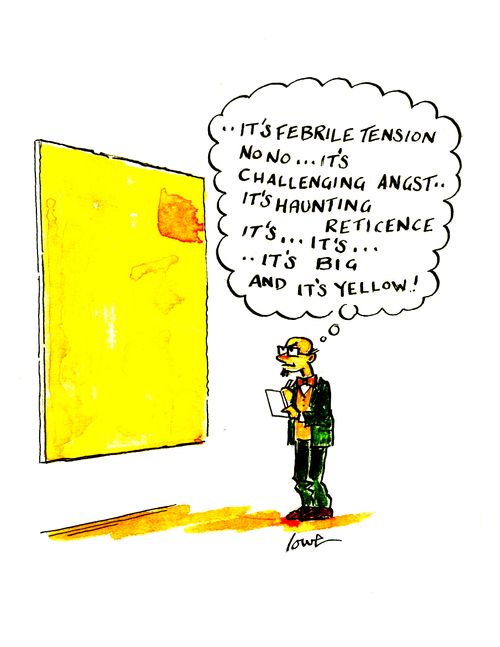 ..IT'S FEBRILE TENSION
NO NO...IT'S
CHALLENGING ANGST..
IT'S HAUNTING
RETICENCE
IT'S...IT'S...
..IT'S BIG
AND IT'S YELLOW.!
lowe